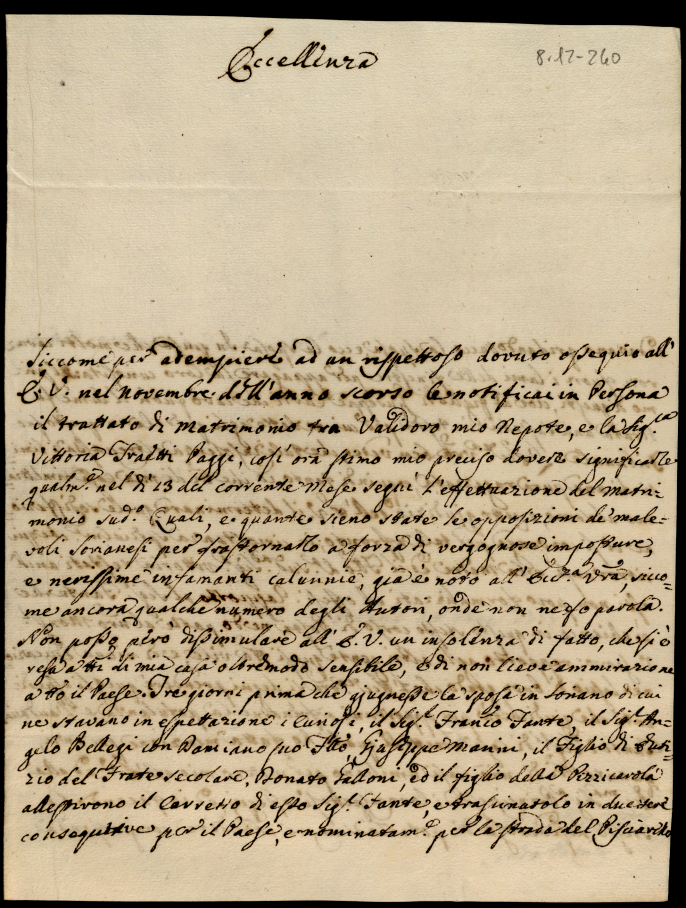 Eccellenza
8.12-260
Siccome per adempiere ad un rispettoso dovuto ossequio all'
E. V. nel novembre dell'anno scorso le notificai in Persona
il trattato di Matrimonio tra Validoro mio Nepote, e la Sig.ra
Vittoria Paggi, così ora stimo mio preciso dovere significarle
qualm.e nel dì 13 del corrente Mese seguì l'effettuazione del Matri-
monio sud.o Quali, e quante sieno state le opposizioni de' male-
voli Sorianesi per frastornarlo a forza di vergognose imposture,
e nerissime infamanti calunnie, già è noto all'Ecc.za Vra, sicco-
me ancora qualche numero degli Autori, onde non ne fo parola.
Non posso però dissimulare all'E. V. un insolenza di fatto, che si è
resa a tti di mia casa oltremodo sensibile, e di non lieve ammirazione
a tto il Paese. Tre giorni prima che giugnesse la sposa in Soriano di cui
ne stavano in espettazione i Curiosi, il Sig.r Franco Fante, il Sig.r An-
gelo Pellegi con Damiano suo Fllo, Giuseppe Manini, il Figlio di
zio del Frate secolare, Donato Falloni, ed il figlio della Pizzicarola
allestirono il Carretto di esso Sig.r Fante, e trascinatolo in due sere
consequtive per il Paese, e nominatam.e per la strada del